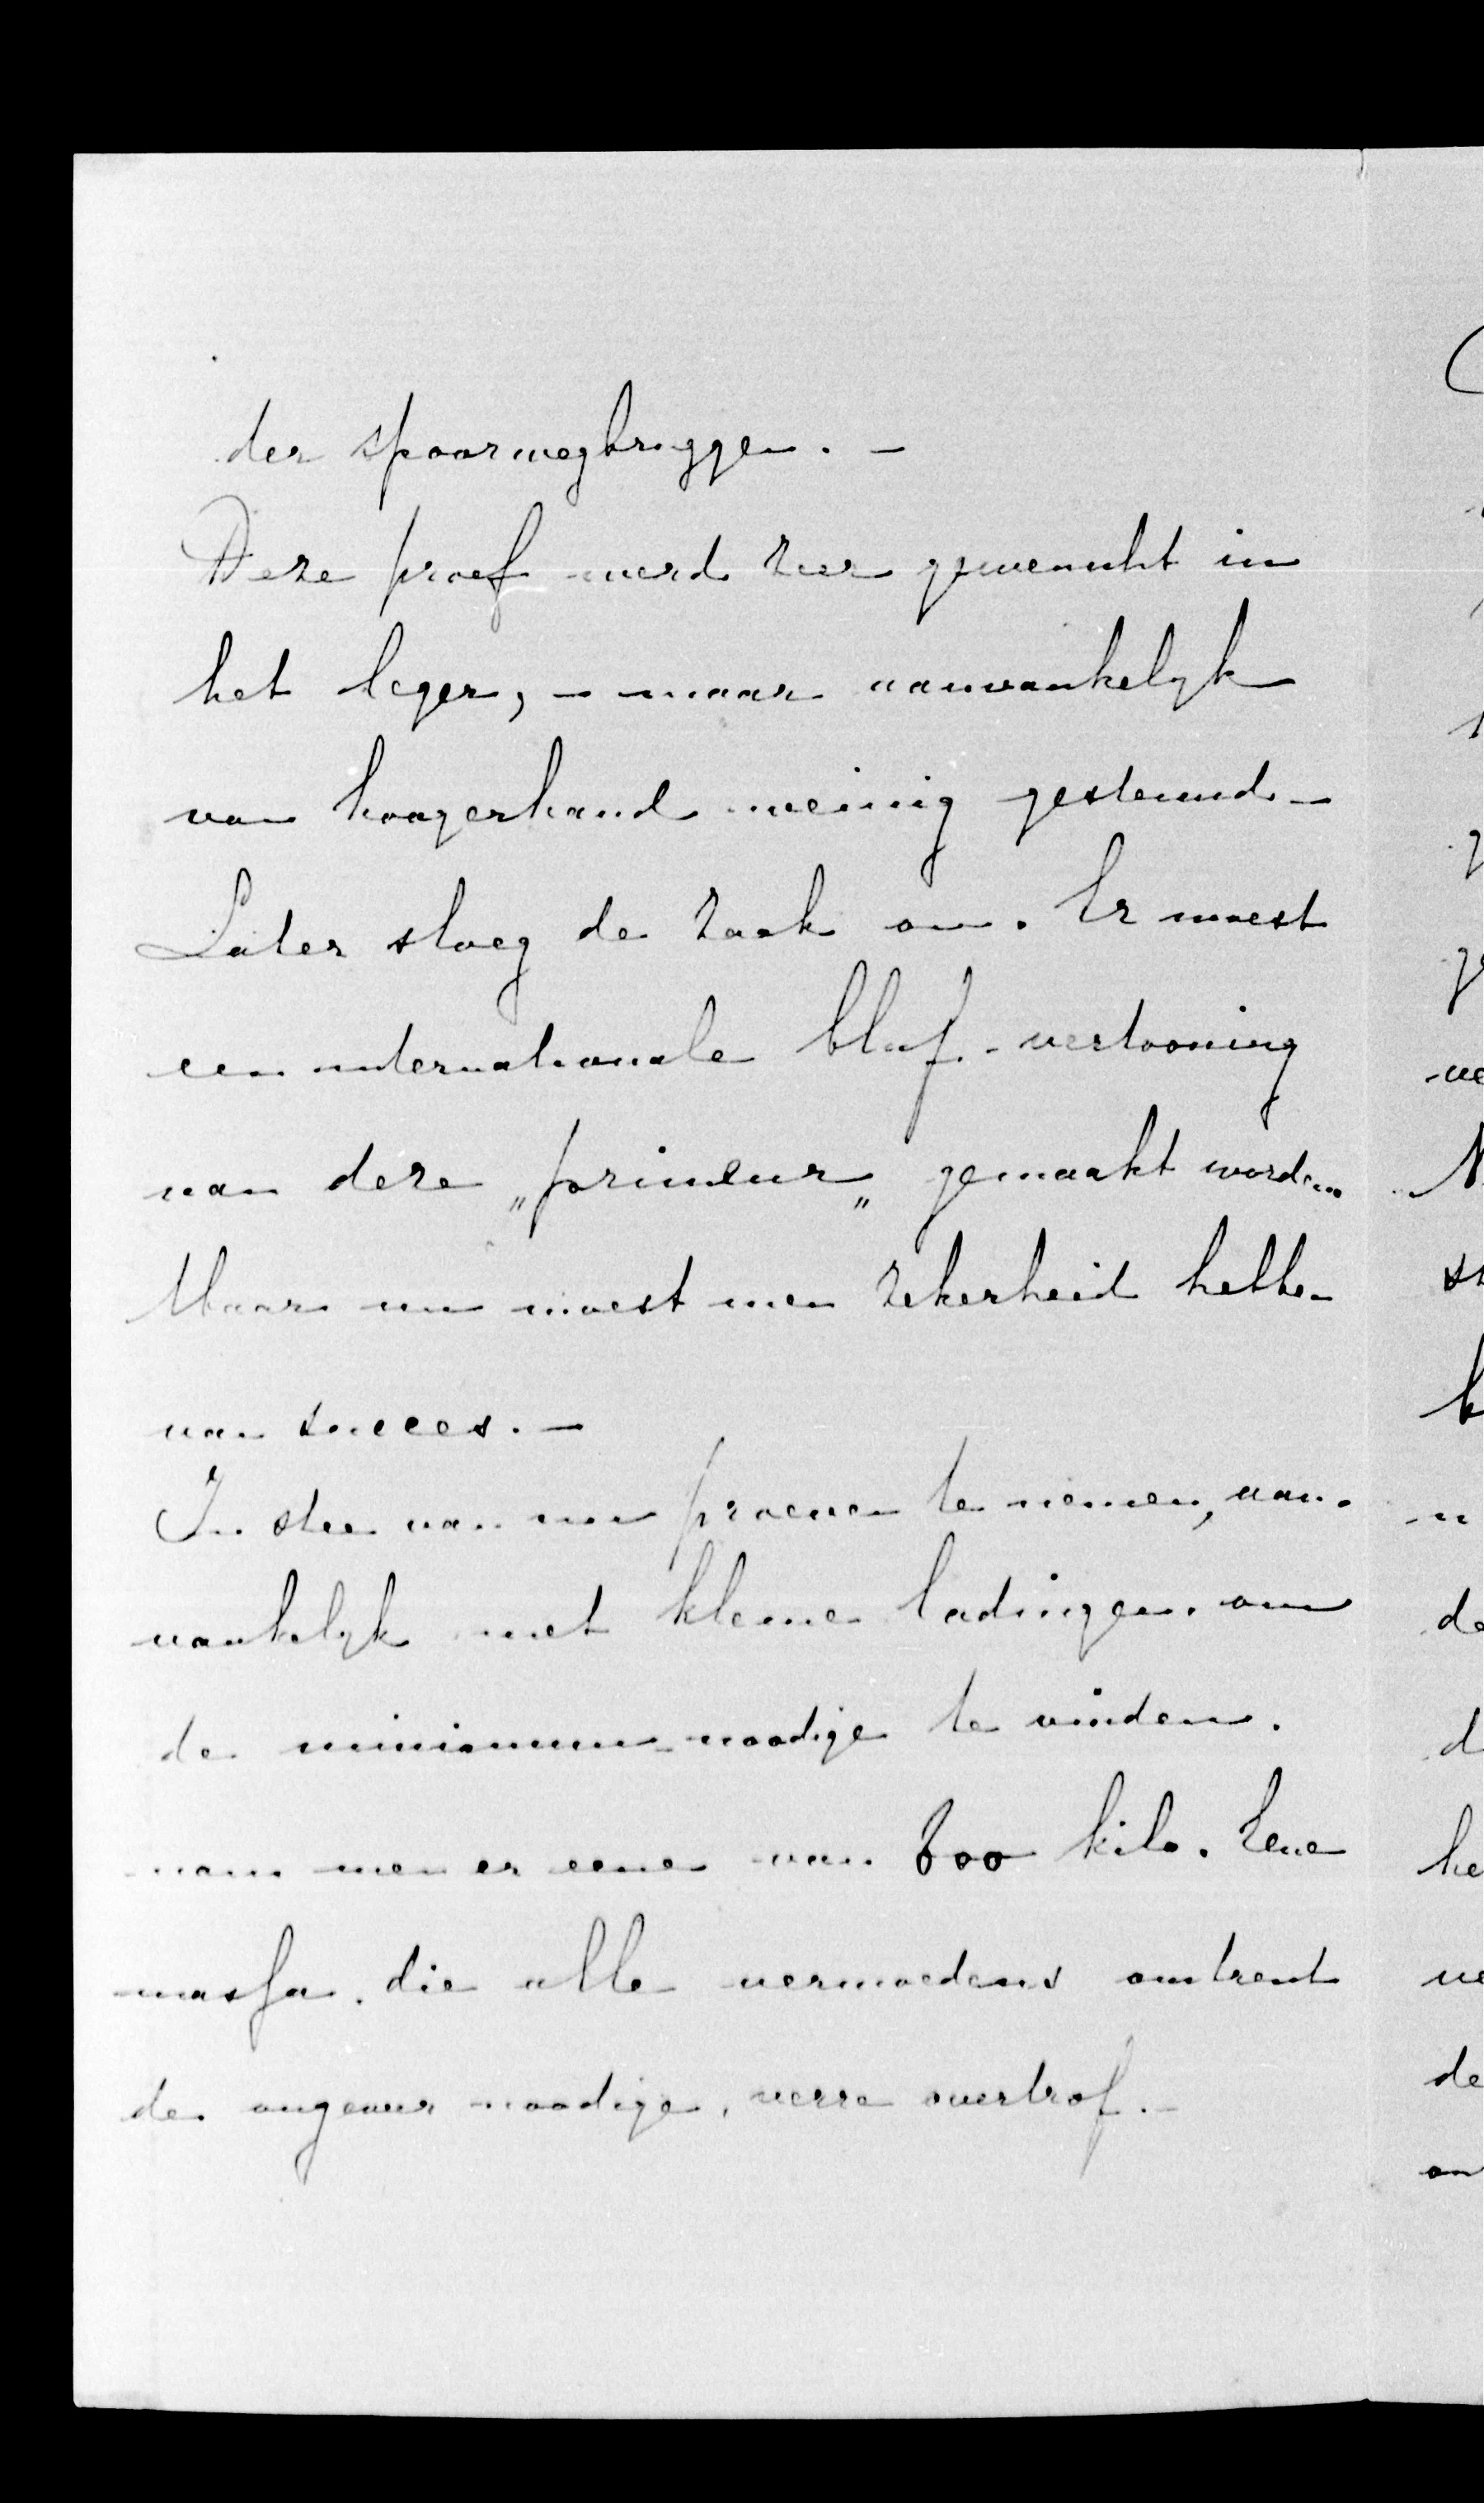 der spoorwegbruggen. –
Deze proef werd zeer gewenscht in
het leger, – maar aanvankelyk
van hoogerhand weinig gesteund. –
Later sloeg de zaak om. Er moest
een internationale bluf-vertooning
van deze „primeur„ gemaakt worden.
Maar nu moest men zekerheid hebben
van succes. –
In stee van nu proeven te nemen, aan-
vankelyk met kleine ladingen. om
de minimum-noodige te vinden.
nam men er eene van 600 kilo. Eene
massa. die alle vermoedens omtrent
de ongeveer noodige, verre overtrof. –